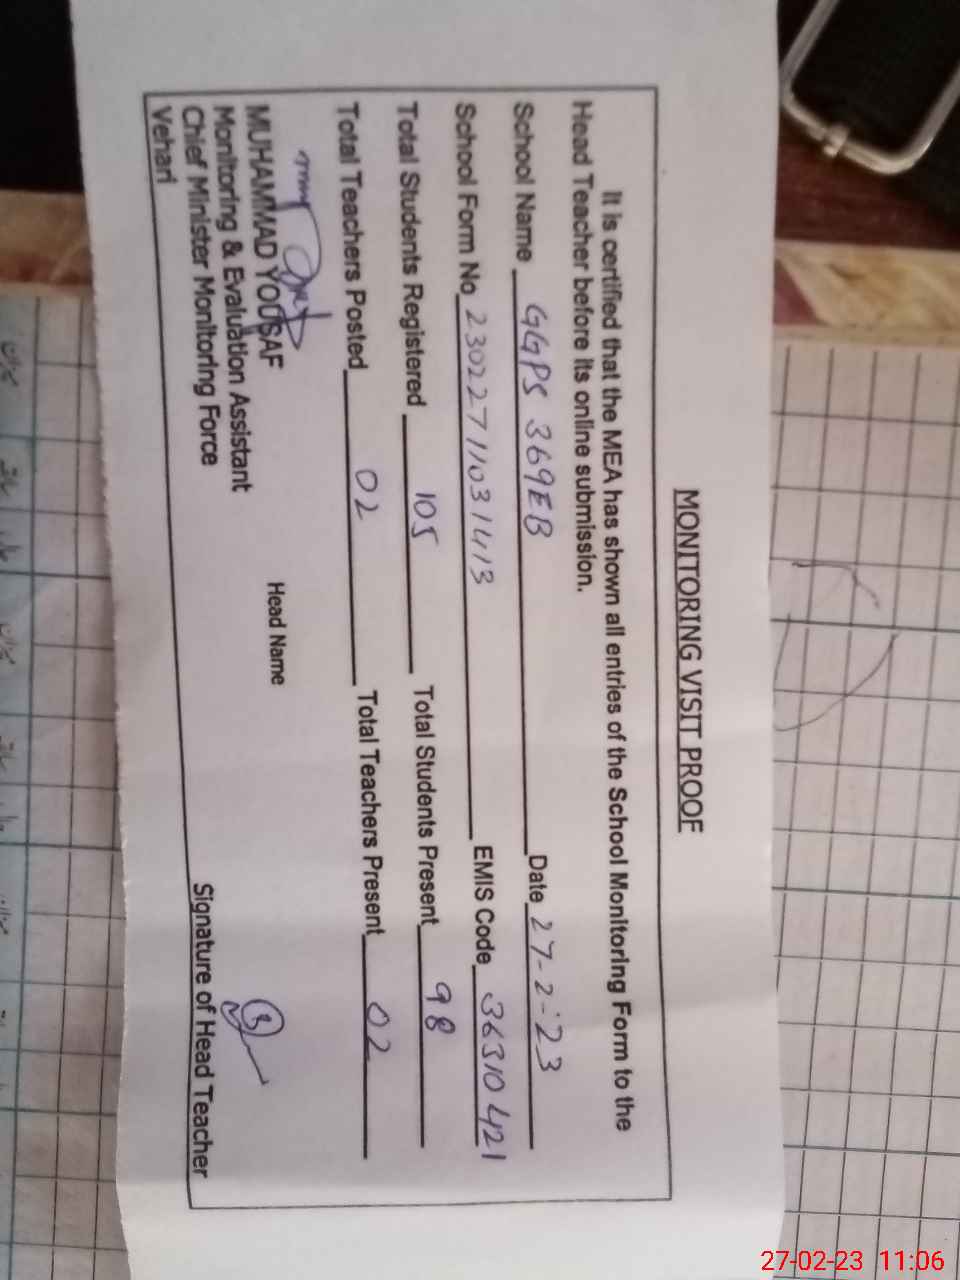 MONITORING VISIT PROOF
It is certified that the MEA has shown all entries of the School Monitoring Form to the
Head Teacher before its online submission.
School Name GGPS 369EB Date 27-2-23
School Form No 23022711031413 EMIS Code 36310421
Total Students Registered 105 Total Students Present 98
Total Teachers Posted 02 Total Teachers Present 02
MUHAMMAD YOUSAF Head Name
Monitoring & Evaluation Assistant
Chief Minister Monitoring Force Signature of Head Teacher
Vehari
27-02-23 11:06